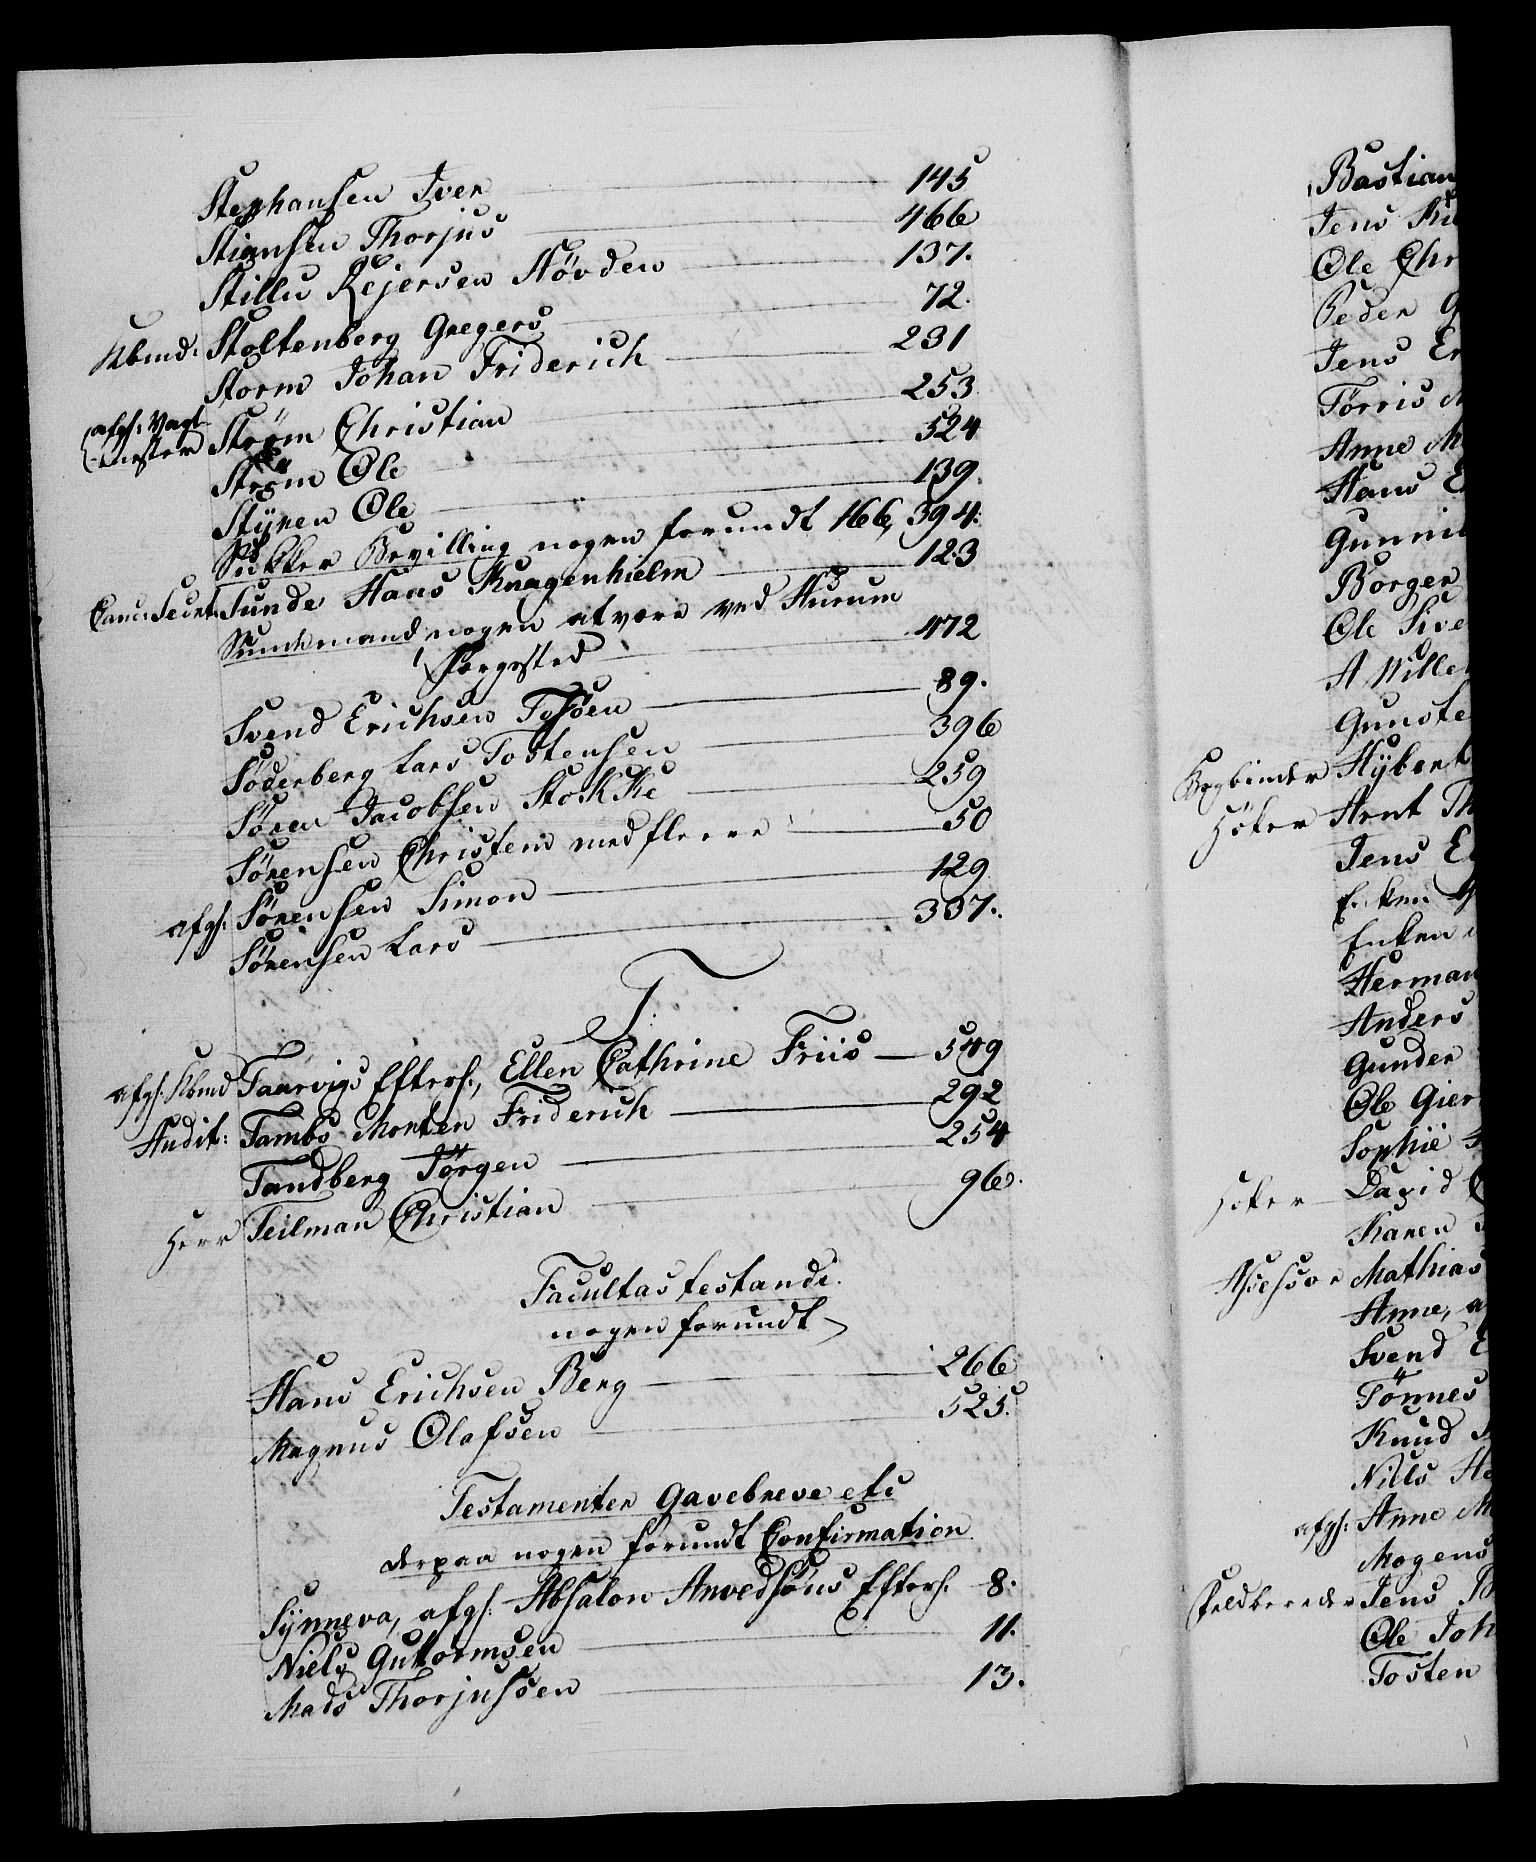 Stephansen Iver 145
Stiansen Thorjus 466
Stillu Rejersen Stövden 137.
Kbmd: Stoltenberg Gregers 72.
Storm Johan Friderich 231
afg: Vagt-
mester Ström Christian 253
Ström Ole 524
Styren Ole 139.
Sukker Bevilling nogen forundt 166, 394.
Canc: Secrt: Sunde Hans Knagenhielm 123
Sundemand nogen at være ved Hurum
færgested 472
Svend Erichsen Tofsöen 89.
Söderberg Lars Tostensen 396
Sören Jacobsen Stokke 259
Sörensen Christen med fleere 50
afg: Sörensen Simon 129
Sörensen Lars 337.
T:
afg: Kbmd Taarvigs Efterl:, Ellen Cathrine Friis 549
Audit: Tambs Morten Friderich 292
Tandberg Jörgen 254
Herr Teilman Christian 96.
Facultas testandi
nogen forundt
Hans Erichsen Berg 266
Magnus Olafsen 525.
Testamenter Gavebreve etc
derpaa nogen forundt Confirmation
Synneva, afg: Absalon Anvedsöns Efterl: 8.
Niels Guttormsen 11.
Mads Thorjussen 13.
Bastian
Jens
Ole Chr
Peder G
Jens Er
Törris
Anne M
Hans E
Gunnil
Borger
Ole Sive
A Wille
Gunste
Bogbinder Hybert
Höker Arnt Th
Jens E
Enken
Enken
Herman
Anders
Gunder
Ole Gier
Sophie
Höker David
Karen
Assessor Mathias
Anne, a
Svend E
Tönnes
Knud
Niels He
afg: Anne M
Mogens
Feldbereder Jens
Ole Joh
Tosten